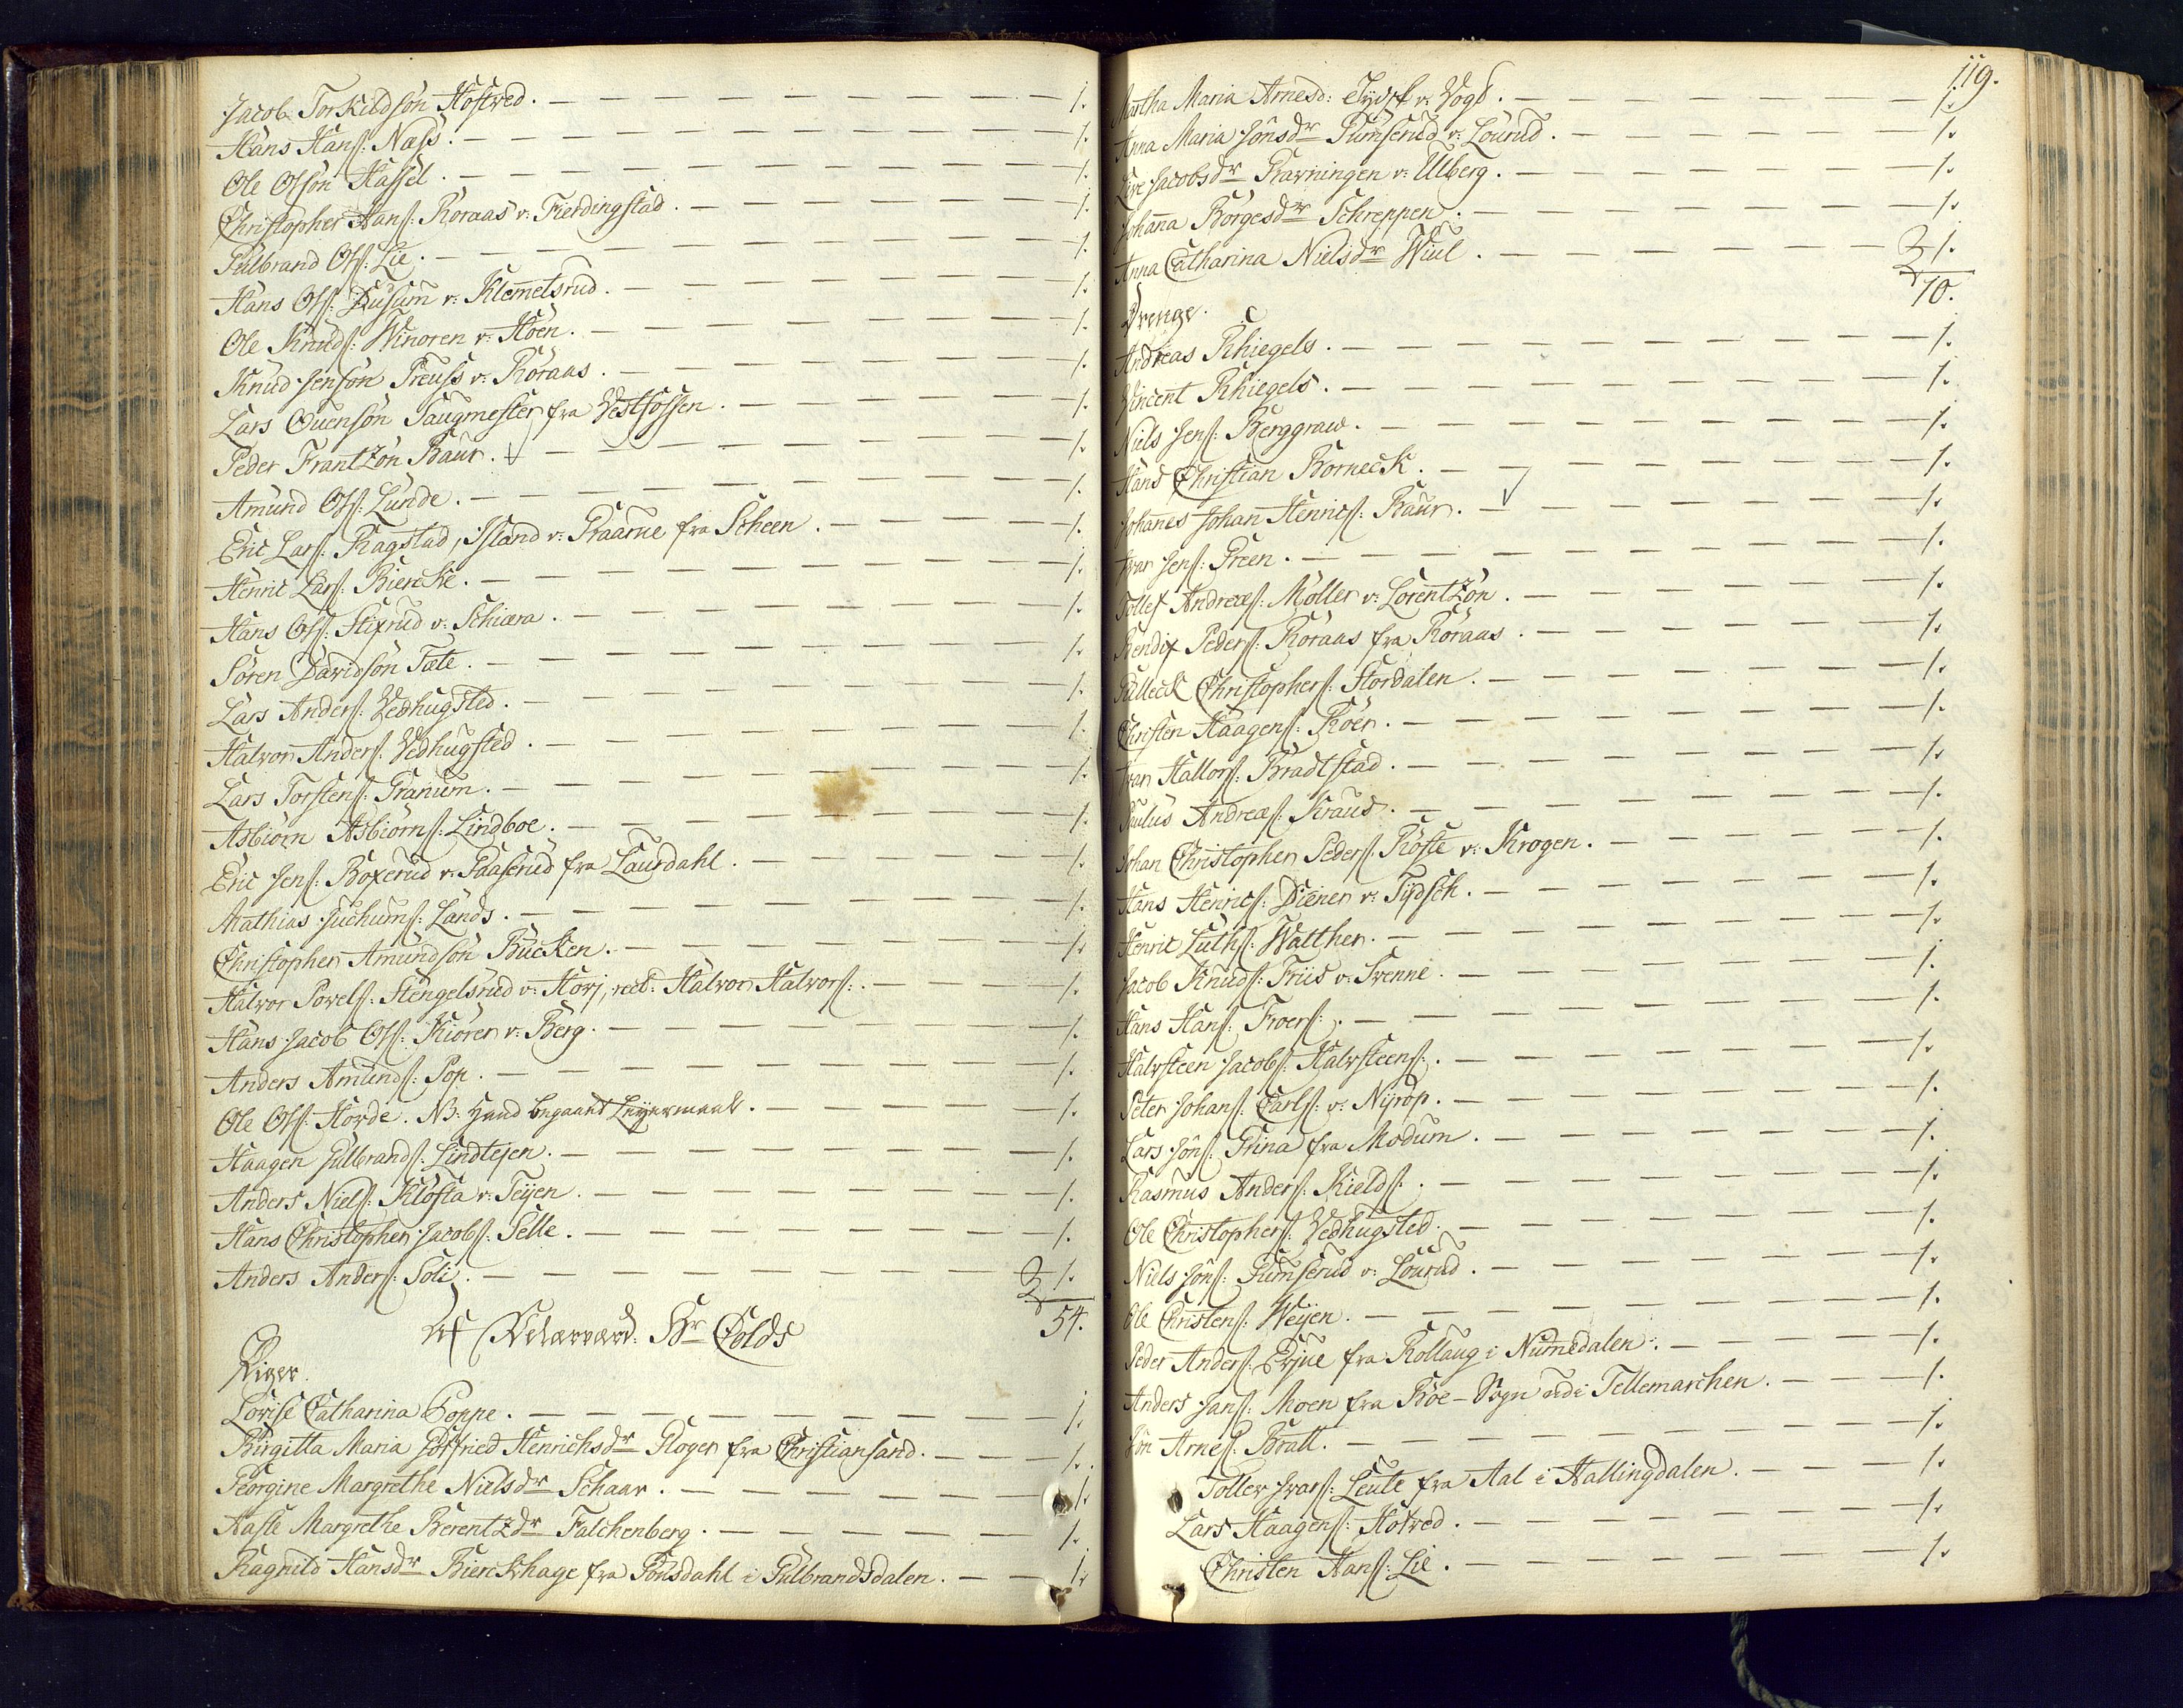 Jacob Torkildsøn Hostved. — 1.
Hans Hanſ: Næss. — 1.
Ole Olsøn Hassel. — 1.
Christopher Hanſ: Roraas v: Fierdingstad. — 1.
Gulbrand Olſ: Lie. — 1.
Hans Olſ: Dusum v: Klemetsrud. — 1.
Ole Knudſ: Winoren v: Hoen. — 1.
Knud Jensøn Preuss v: Roraas. — 1.
Lars Ouensøn Saugmester fra Vestfossen. — 1.
Peder Frantzøn Baur. — 1.
Amund Olſ: Lunde. — 1.
Eric Larſ: Ragstad, Island v: Praarue fra Scheen. — 1.
Henric Larſ: Biercke. — 1.
Hans Olſ: Stixrud v: Schiæra. — 1.
Søren Davidsøn Tæte. — 1.
Lars Anderſ: Vedhugsted. — 1.
Halvor Anderſ: Vedhugsted. — 1.
Lars Torstenſ: Granum. — 1.
Asbiørn Asbiørnſ: Lindboe. — 1.
Eric Jenſ: Boxerud v: Paaserud fra Laurdahl. — 1.
Mathias Juchumſ: Lands. — 1.
Christopher Amundsøn Bucken. — 1.
Halvor Povelſ: Stengelsrud v: Horj, rect: Halvor Halvorſ: — 1.
Hans Jacob Olſ: Kiører v: Berg. — 1.
Anders Amundſ: Pop. — 1.
Ole Olſ: Horde. NB: Hand begaaet Leyermaal. — 1.
Haagen Gulbrandſ: Lindtejen. — 1.
Anders Nielſ: Klofta v: Teijen. — 1.
Hans Christopher Jacobſ: Selle. — 1.
Anders Anderſ: Soli. — 1.
54.
Af Hr Colds
Piger.
Lovise Catharina Poppe. — 1.
Birgitta Maria Gotfried Henrichsdr Ploger fra Christiansand. — 1.
Georgine Margrethe Nielsdr Schaar. — 1.
Aaste Margrethe Berentzdr Falchenberg. — 1.
Ragnild Hansdr Bierckhage fra Fonsdahl i Gulbrandsdalen. — 1.
119.
Martha Maria Arnesd: Tydsk v: Vogt. — 1.
Anna Maria Jonsdr Gumserud v: Lourud. — 1.
Live Jacobsdr Ravningen v: Ulberg. — 1.
Johana Børgesdr Schreppen. — 1.
Anna Catharina Nielsdr Wiul. — 1.
10.
Drenge.
Andreas Khiegels. — 1.
Vincent Khiegels. — 1.
Niels Jenſ: Berggraw. — 1.
Hans Christian Borneck. — 1.
Johanes Johan Henricſ: Baur. — 1.
Ivar Jenſ: Green. — 1.
Tollef Andreæſ: Møller v: Lorentzøn. — 1.
Bendix Pederſ: Roraas fra Roraas. — 1.
Palleck Christopherſ: Stordalen. — 1.
Christen Haagenſ: Roer. — 1.
Ivar Hallorſ: Bradtstad. — 1.
Paulus Andreæſ: Kraus. — 1.
Johan Christopher Pederſ: Røste v: Krogen. — 1.
Hans Henricſ: Diener v: Tydsch. — 1.
Henric Luthſ: Walther. — 1.
Jacob Knudſ: Friis v: Svenne. — 1.
Hans Hanſ: Froerſ: — 1.
Halvsteen Jacobſ: Halvsteenſ: — 1.
Peter Johanſ: Carlſ: v: Nyrop. — 1.
Lars Jonſ: Grina fra Modum. — 1.
Rasmus Anderſ: Kieldſ: — 1.
Ole Christopherſ: Vedhugsted. — 1.
Niels Jonſ: Gumserud v: Lourud. — 1.
Ole Christenſ: Weyen. — 1.
Peder Anderſ: Erjue fra Rollaug i Numedalen. — 1.
Anders Janſ: Moen fra Boe-Sogn udi Tellemarchen. — 1.
Jon Arneſ: Bratt. — 1.
Toller Ivarſ: Leute fra Aal i Hallingdalen. — 1.
Lars Haagenſ: Hotved. — 1.
Christen Hanſ: Lie. — 1.